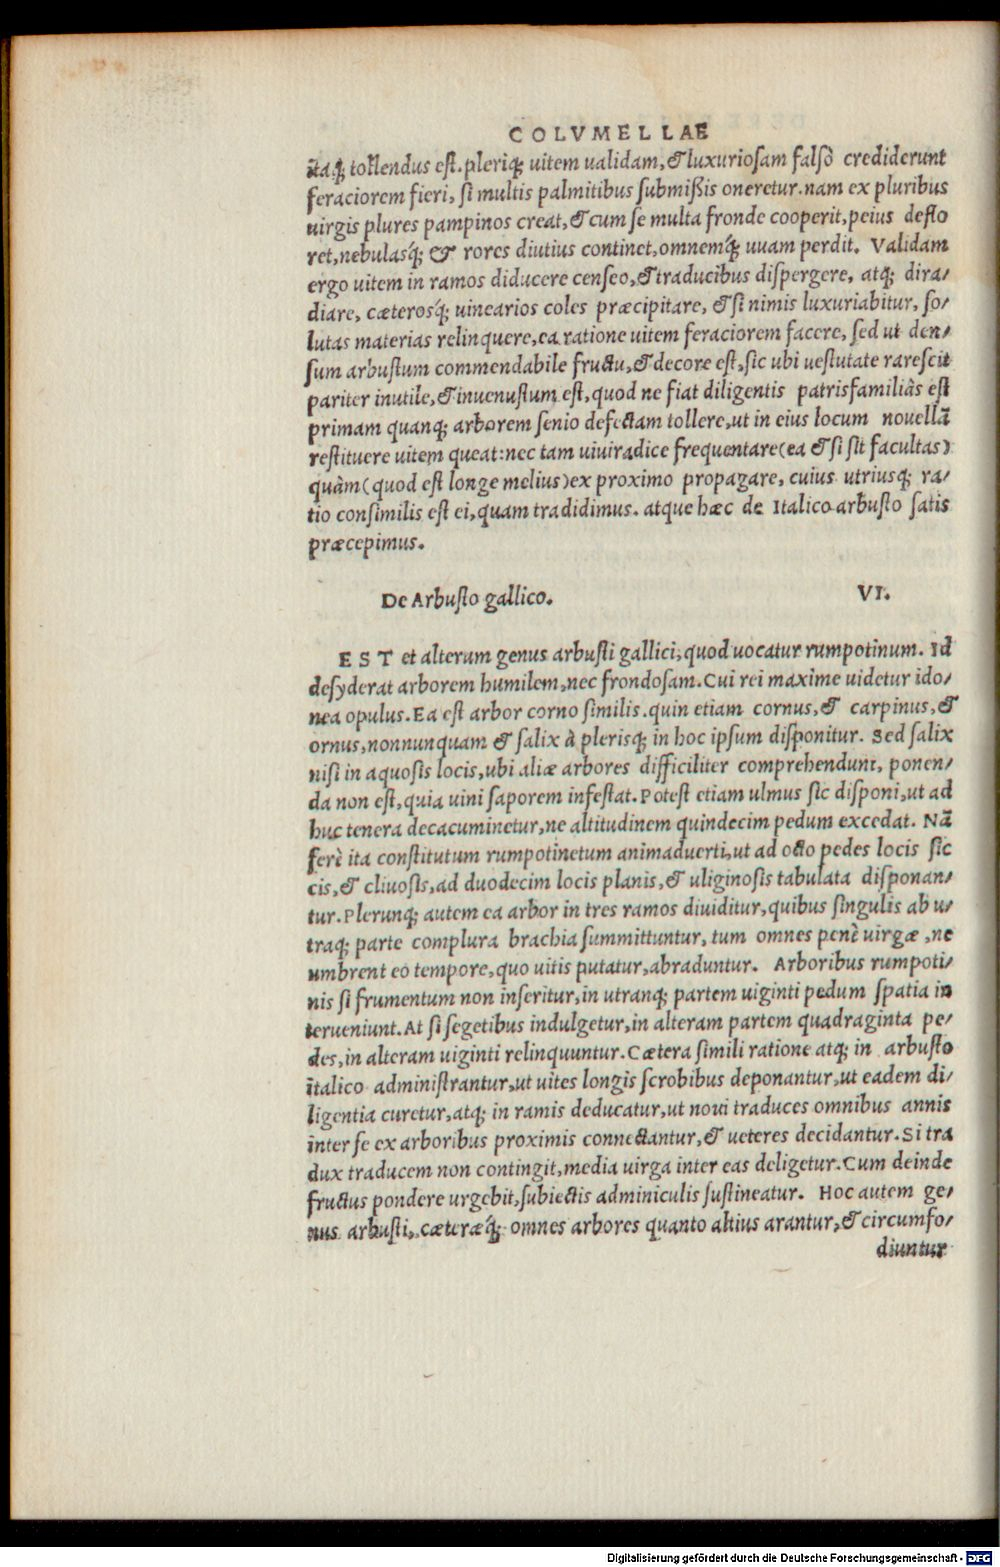 COLVMELLAE
itaq; tollendus est. pleriq; uitem ualidam, & luxuriosam falsò crediderunt
feraciorem fieri, si multis palmitibus submißis oneretur. nam ex pluribus
uirgis plures pampinos creat, & cum se multa fronde cooperit, peius deflo
ret, nebulasq́; & rores diutius continet, omnemq́; uuam perdit. Validam
ergo uitem in ramos diducere censeo, & traducibus dispergere, atq; dira/
diare, cæterosq́; uinearios coles præcipitare, & si nimis luxuriabitur, so/
lutas materias relinquere, ea ratione uitem feraciorem facere, sed ut den/
sum arbustum commendabile fructu, & decore est, sic ubi uestutate rarescit
pariter inutile, & inuenustum est, quod ne fiat diligentis patrisfamiliâs est
primam quanq; arborem senio defectam tollere, ut in eius locum nouellā
restituere uitem queat: nec tam uiuiradice frequentare (ea & si sit facultas)
quàm (quod est longe melius) ex proximo propagare, cuius utriusq; ra/
tio consimilis est ei, quam tradidimus. atque hæc de Italico arbusto satis
præcepimus.
De Arbusto gallico. VI.
EST et alterum genus arbusti gallici, quod uocatur rumpotinum. Id
desyderat arborem humilem, nec frondosam. Cui rei maxime uidetur ido/
nea opulus. Ea est arbor corno similis. quin etiam cornus, & carpinus, &
ornus, nonnunquam & salix à plerisq; in hoc ipsum disponitur. Sed salix
nisi in aquosis locis, ubi aliæ arbores difficiliter comprehendunt, ponen/
da non est, quia uini saporem infestat. Potest etiam ulmus sic disponi, ut ad
huc tenera decacuminetur, ne altitudinem quindecim pedum excedat. Nā
ferè ita constitutum rumpotinetum animaduerti, ut ad octo pedes locis sic
cis, & cliuosis, ad duodecim locis planis, & uliginosis tabulata disponan/
tur. Plerunq; autem ea arbor in tres ramos diuiditur, quibus singulis ab u/
traq; parte complura brachia summittuntur, tum omnes penè uirgæ, ne
umbrent eo tempore, quo uitis putatur, abraduntur. Arboribus rumpoti/
nis si frumentum non inseritur, in utranq; partem uiginti pedum spatia in
terueniunt. At si segetibus indulgetur, in alteram partem quadraginta pe/
des, in alteram uiginti relinquuntur. Cætera simili ratione atq; in arbusto
italico administrantur, ut uites longis scrobibus deponantur, ut eadem di/
ligentia curetur, atq; in ramis deducatur, ut noui traduces omnibus annis
inter se ex arboribus proximis connectantur, & ueteres decidantur. Si tra
dux traducem non contingit, media uirga inter eas deligetur. Cum deinde
fructus pondere urgebit, subiectis adminiculis sustineatur. Hoc autem ge/
nus arbusti, cæteræq́; omnes arbores quanto altius arantur, & circumfo/
diuntur
Digitalisierung gefördert durch die Deutsche Forschungsgemeinschaft - DFG